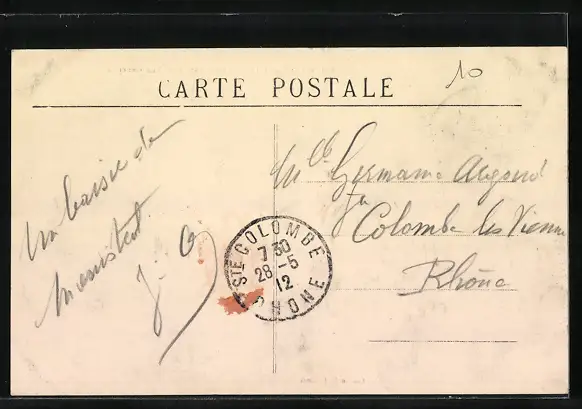 10
CARTE POSTALE
Un baiser de
J. A
Mlle Germaine
Ste
Colombe les Vienne
Rhône
STE COLOMBE
7 30
28-5
12
RHONE